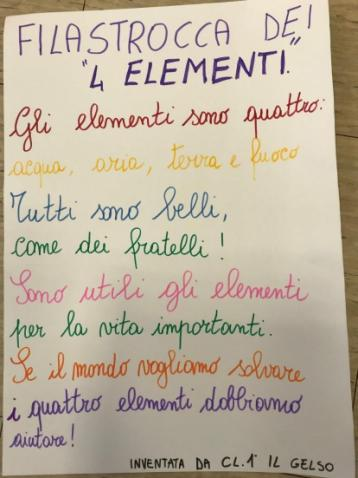 FILASTROCCA DEI
"4 ELEMENTI."
Gli elementi sono quattro:
acqua, aria, terra e fuoco
Tutti sono belli,
come dei fratelli!
Sono utili gli elementi
per la vita importanti.
Se il mondo vogliamo salvare
i quattro elementi dobbiamo
aiutare!
INVENTATA DA CL.1ª IL GELSO